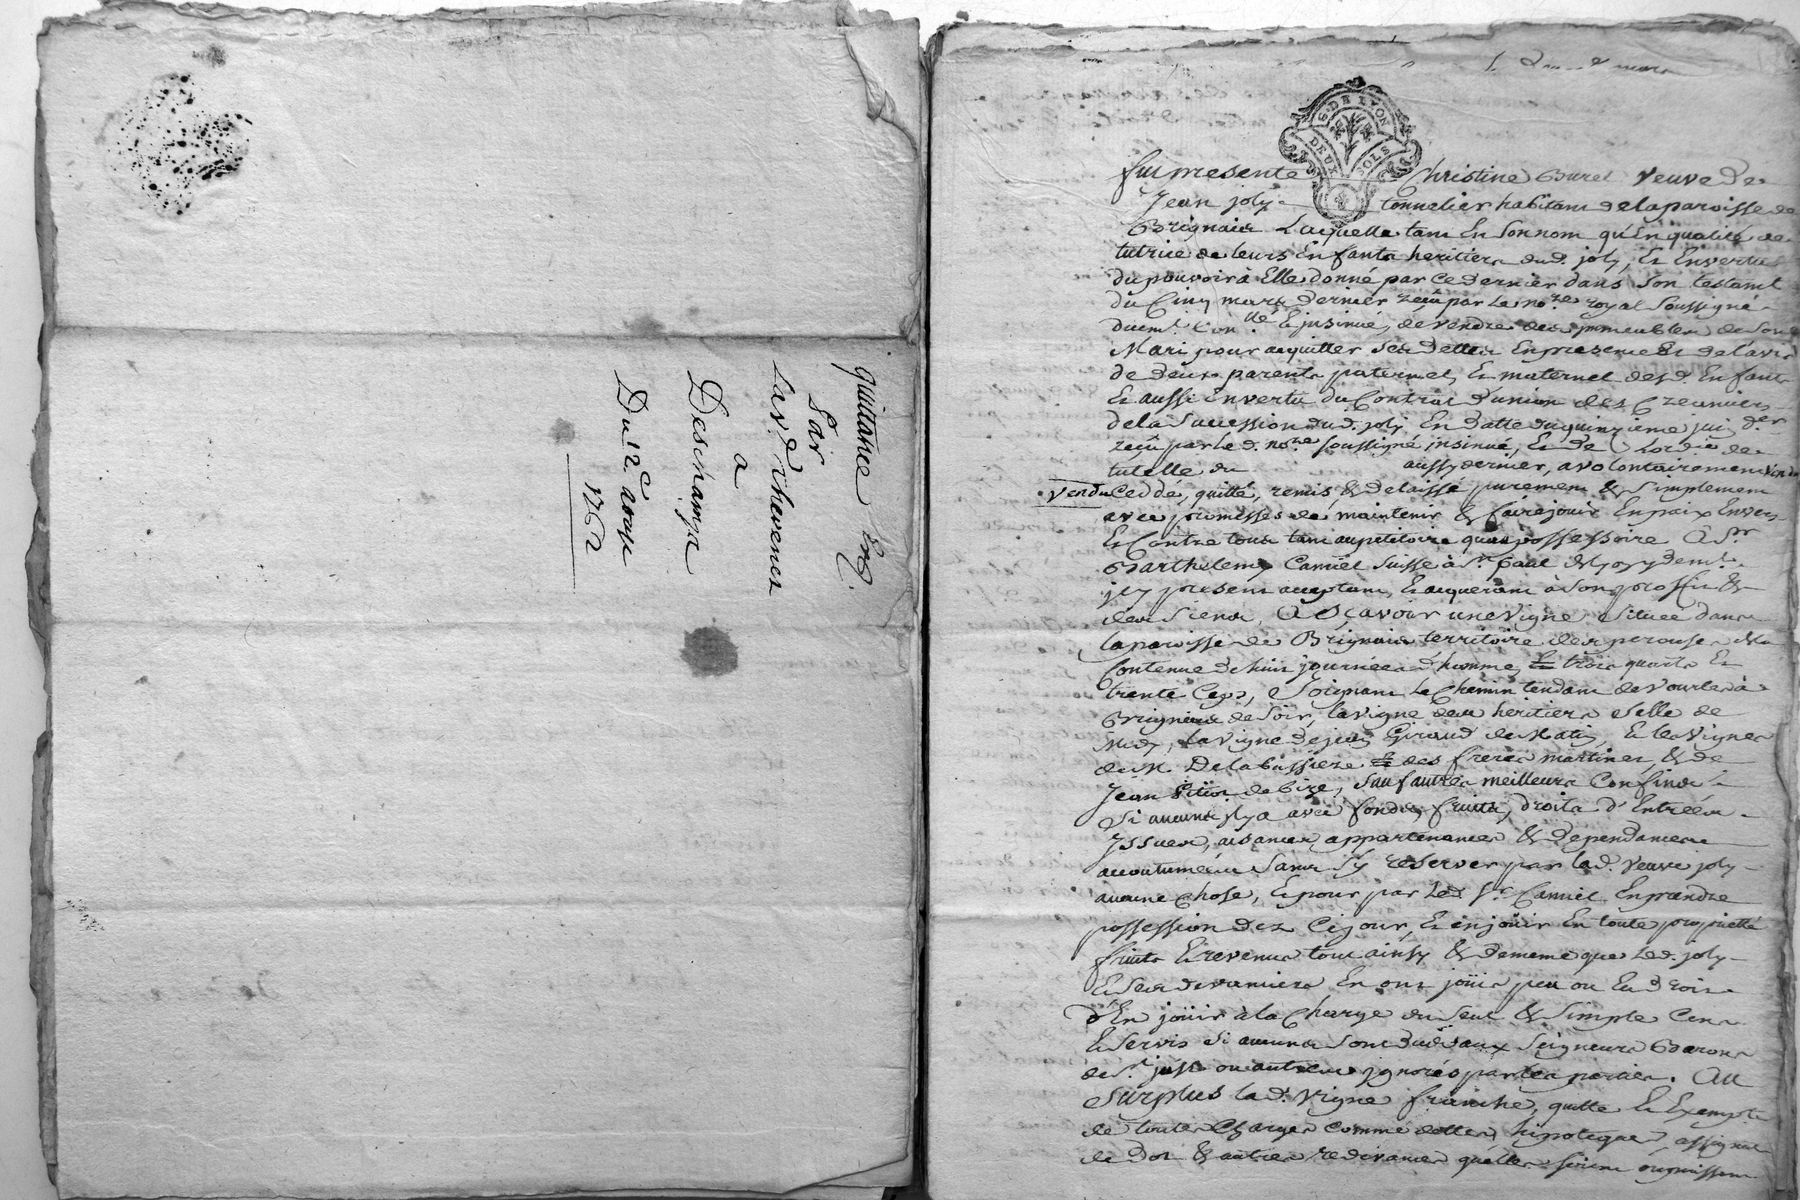 quittance
Par
La v.e Thevenet
a
Deschamps
Du 12e aoust
1762
G. DE LYON
DEUX SOLS
fut presente Christine Burel veuve de
Jean joly tonnelier habitant de la paroisse de
Brignais Laquelle tant En son nom qu'En qualité de
tutrice de leurs Enfants heritiers dud. joly, Et En vertu
du pouvoir à Elle donné par ce dernier dans son testamt
du Cinq mars dernier reçu par le nore royal soussigné
duemt con.llé & insinué, de vendre des immeubles de son
Mari pour acquitter ses dettes En presence Et de l'avis
de deux parents paternel & maternel desd. Enfants
Et aussi En vertu du Contrat d'union des Creanciers
de la succession dud. joly En datte du quinzieme jui der
reçu par led. nore soussigné insinué, Et de
tutelle du aussy dernier, a volontairement vendu
vendu Ceddé, quitté, remis & delaissé purement & simplement
avec promesses de maintenir & faire jouir En paix Envers
Et Contre tous tant au petitoire qu'au possessoire A Sr
Barthelemy Camiel suisse à St. paul de Lyon y demt.
icy present acceptant, Et acquerant à son proffit &
des siens, A Sçavoir une vigne située dans
la paroisse de Brignais territoire des perouses de la
Contenue de huit journées d'homme, trois quarts Et
trente Ceps, joignant le Chemin tendant de vourles à
Brignais de soir, la vigne des heritiers selle de
midy, la vigne de jean Giraud de Matin, Et les vignes
de M. Delabussiere des freres martinet & de
Jean de bize, sauf autres meilleurs Confins
si aucuns il y a avec fonds, fruits, droits d'Entrées
Issues, aisances, appartenances & Dependances
accoutumées sans s'y reserver par lad. veuve joly
aucune Chose, Et pour par Led. Sr. Camiel En prendre
possession dez Ce jour, Et en joüir En toute propriété
fruits Et revenus tout ainsy & de meme que Led. joly
Et ses devanciers En ont joüi peu ou Eu droit
d'En joüir à la Charge du seul & simple Cens
Et servis si aucuns sont dus aux seigneurs Barons
de St. just ou autres ignorés par les parties. Au
surplus lad. vigne franche, quitte Et Exempte
de toutes Charges comme dettes, hipoteques, assignat
de Dot & autres redevances qu'elles soient ou puissent